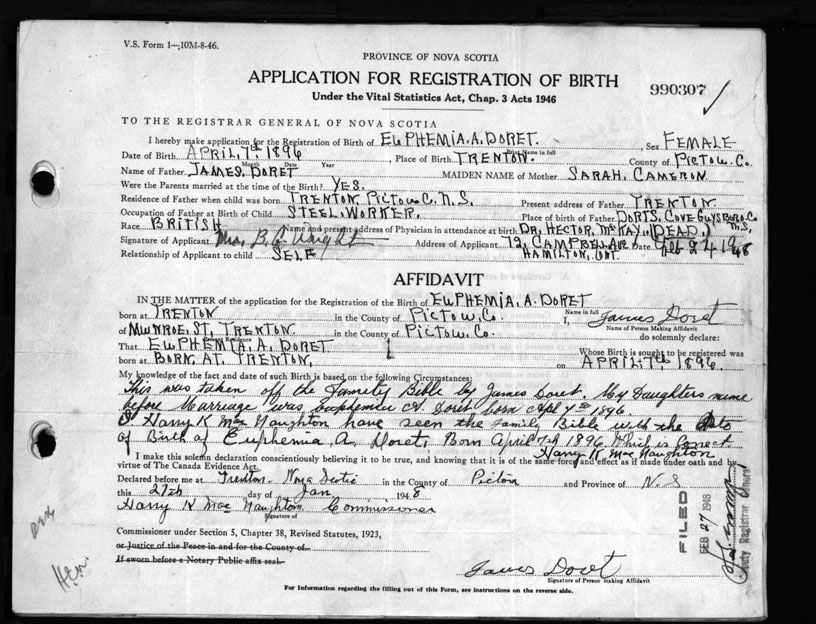 V.S. Form 1—10M-8-46.
PROVINCE OF NOVA SCOTIA
APPLICATION FOR REGISTRATION OF BIRTH
990307
Under the Vital Statistics Act, Chap. 3 Acts 1946
TO THE REGISTRAR GENERAL OF NOVA SCOTIA
I hereby make application for the Registration of Birth of EUPHEMIA. A. DORET. Sex FEMALE
Print Name in full
Date of Birth APRIL, 7th, 1896, Place of Birth TRENTON. County of PICTOU. Co.
Month Date Year
Name of Father JAMES. DORET MAIDEN NAME of Mother SARAH. CAMERON
Were the Parents married at the time of the Birth? YES.
Residence of Father when child was born TRENTON PICTOU C. N.S. Present address of Father TRENTON
Occupation of Father at Birth of Child STEEL. WORKER. Place of birth of Father PORTS. COVE GUYSBORO. Co
N.S.
Race BRITISH Name and present address of Physician in attendance at birth DR. HECTOR. McKAY. (DEAD.)
Signature of Applicant Mrs. B. C. Wright Address of Applicant 72, CAMPBELL AVE Date Feb 24 1948
HAMILTON, ONT.
Relationship of Applicant to child SELF
AFFIDAVIT
IN THE MATTER of the application for the Registration of the Birth of EUPHEMIA. A. DORET
Name in full
born at TRENTON in the County of PICTOU. Co. I, James Doret
Name of Person Making Affidavit
of MUNROE. ST, TRENTON in the County of PICTOU. Co. do solemnly declare:
Residence
That EUPHEMIA, A. DORET Whose Birth is sought to be registered was
born at BORN. AT. TRENTON, on APRIL 7th 1896.
My knowledge of the fact and date of such Birth is based on the following Circumstances:
This was taken off the Family Bible by James Doret. My Daughters name
before Marriage was Euphemia A. Doret born Apl 7th 1896.
I Harry K Mac Naughton have seen the family Bible with the date
of Birth of Euphemia, A. Doret, Born April 7th 1896 Which is Correct
Harry K Mac Naughton
I make this solemn declaration conscientiously believing it to be true, and knowing that it is of the same force and effect as if made under oath and by
virtue of The Canada Evidence Act.
Declared before me at Trenton Nova Scotia in the County of Pictou and Province of N.S
this 27th day of Jan 1948
Harry K Mac Naughton Commissioner
Signature of
Commissioner under Section 5, Chapter 38, Revised Statutes, 1923,
or Justice of the Peace in and for the County of
If sworn before a Notary Public affix seal
James Doret
Signature of Person making Affidavit
For Information regarding the filling out of this Form, see instructions on the reverse side.
FILED
FEB 27 1948
Deputy Registrar General